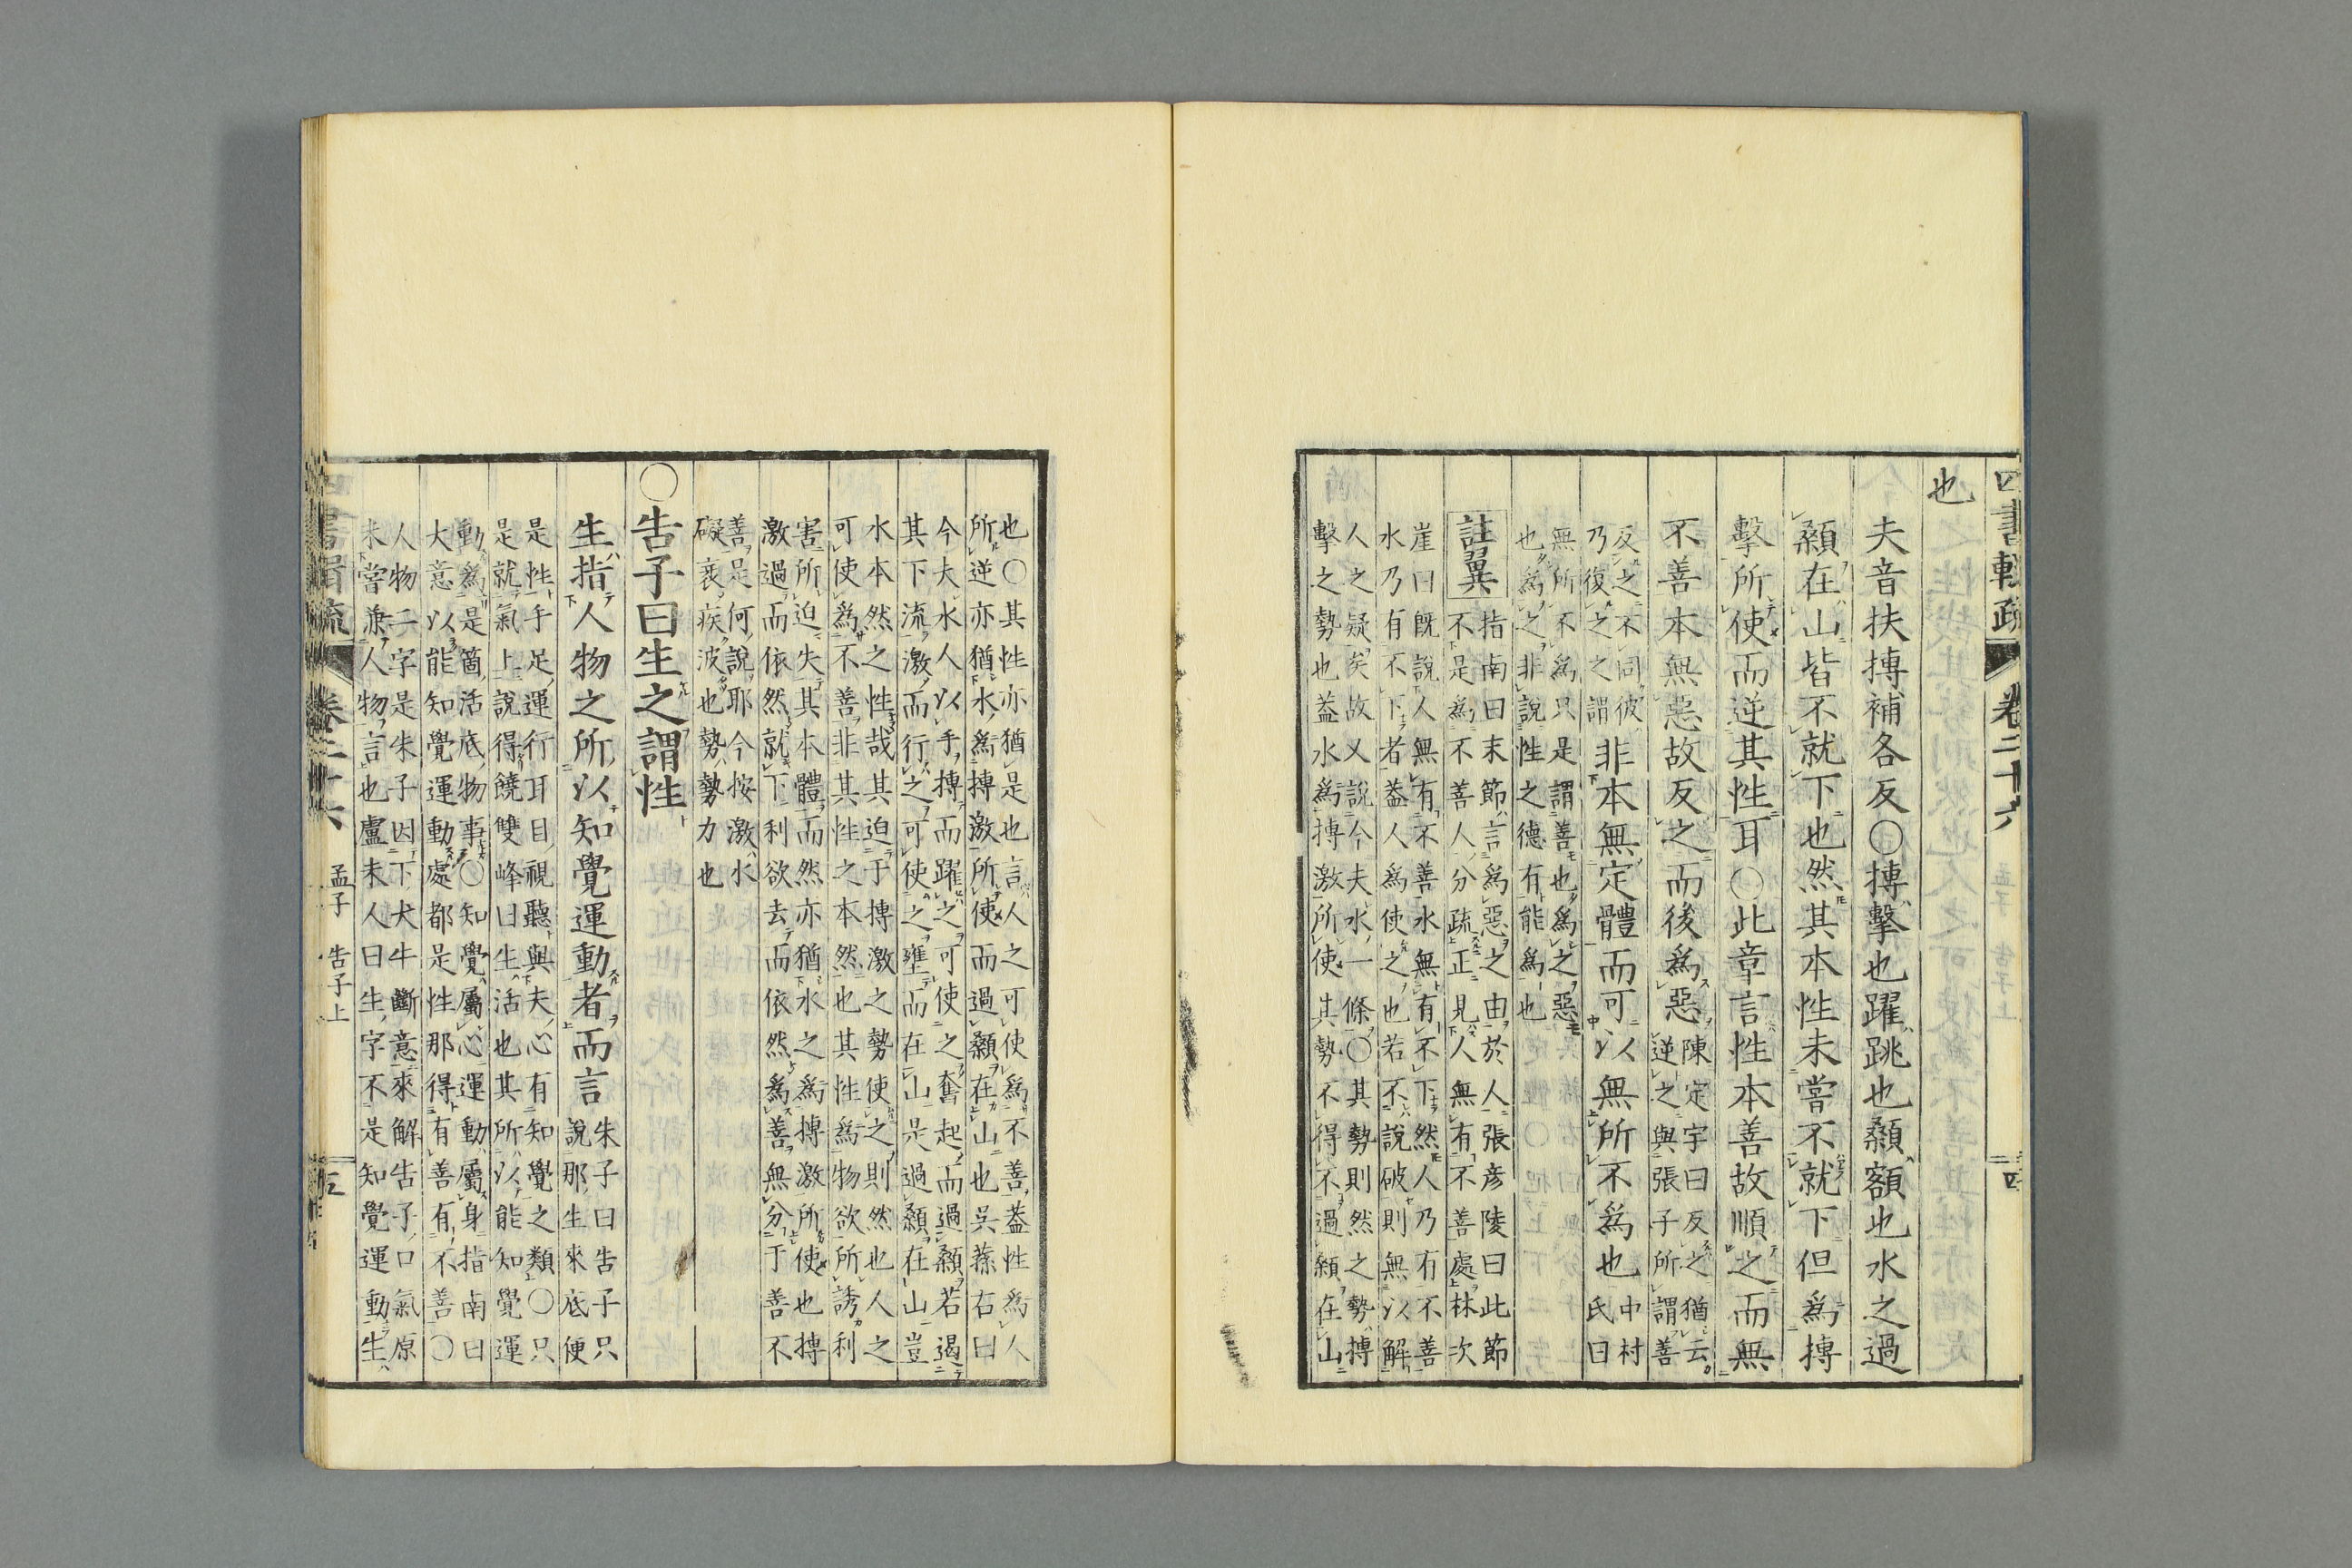 四書輯疏 卷二十六 孟子 告子上 四
也
夫音扶搏補各反〇搏擊也躍跳也顙額也水之過
顙在山皆不就下也然其本性未嘗不就下但為搏
擊所使而逆其性耳〇此章言性本善故順之而無
不善本無惡故反之而後為惡陳定宇曰反之猶云
逆之與張子所謂善
反之不同彼
乃復之之謂非本無定體而可以無所不為也中村
氏曰
無所不為只是謂善也為之惡
也為之非說性之德有能為也
註翼指南曰末節言為惡之由於人張彥陵曰此節
不是為不善人分疏正見人無有不善處林次
崖曰既說人無有不善水無有不下然人乃有不善
水乃有不下者蓋人為使之也若不說破則無以解
人之疑矣故又說今夫水一條〇其勢則然之勢搏
擊之勢也蓋水為搏激所使其勢不得不過顙在山
也〇其性亦猶是也言人之可使為不善蓋性為人
所逆亦猶水為搏激所使而過顙在山也吳蓀右曰
今夫水人以手搏而躍之可使之奮起而過顙若遏
其下流激而行之可使之壅而在山是過顙在山豈
水本然之性哉其迫于搏激之勢使之則然也人之
可使為不善非其性之本然也其性為物欲所誘利
害所迫失其本體而然亦猶水之為搏激所使也搏
激過而依然就下利欲去而依然為善無分于善不
善是何說耶今按激水
礙衺疾波也勢勢力也
〇告子曰生之謂性
生指人物之所以知覺運動者而言朱子曰告子只
說那生來底便
是性手足運行耳目視聽與夫心有知覺之類〇只
是就氣上說得饒雙峰曰生活也其所以能知覺運
動為是箇活底物事〇知覺屬心運動屬身指南曰
大意以能知覺運動處都是性那得有善有不善〇
人物二字是朱子因下犬牛斷意來解告子口氣原
未嘗兼人物言也盧未人曰生字不是知覺運動生
四書輯疏 卷二十六 孟子 告子上 五